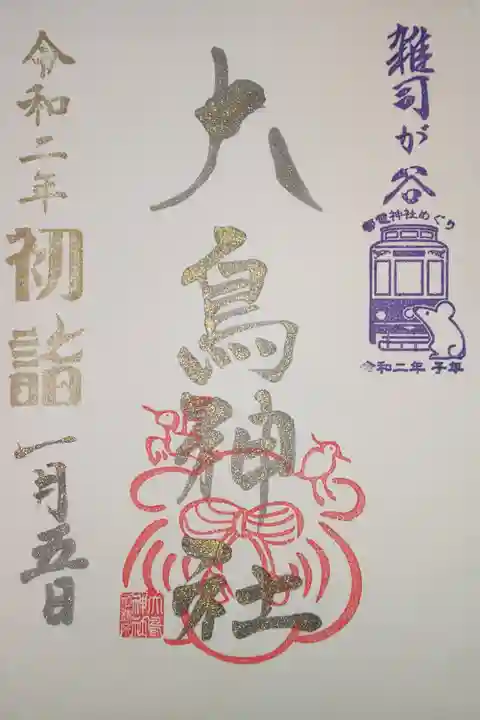 雑司が谷
都電神社めぐり
令和二年 子年
大鳥神社
令和二年 初詣 一月五日